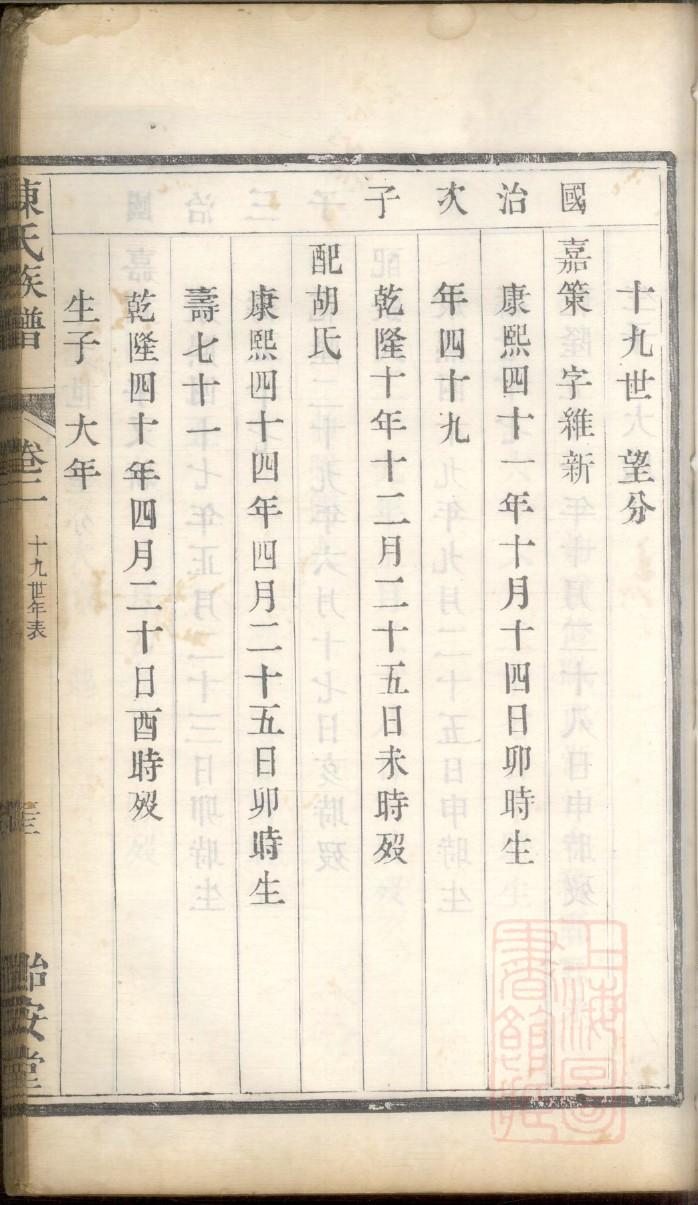 國治次子
十九世 望分
嘉策 字維新
康熙四十一年十月十四日卯時生
年四十九
乾隆十年十二月二十五日未時歿
配胡氏
康熙四十四年四月二十五日卯時生
壽七十一
乾隆四十年四月二十日酉時歿
生子 大年
陳氏族譜
卷二
十九世年表
怡安堂
上海圖書館藏